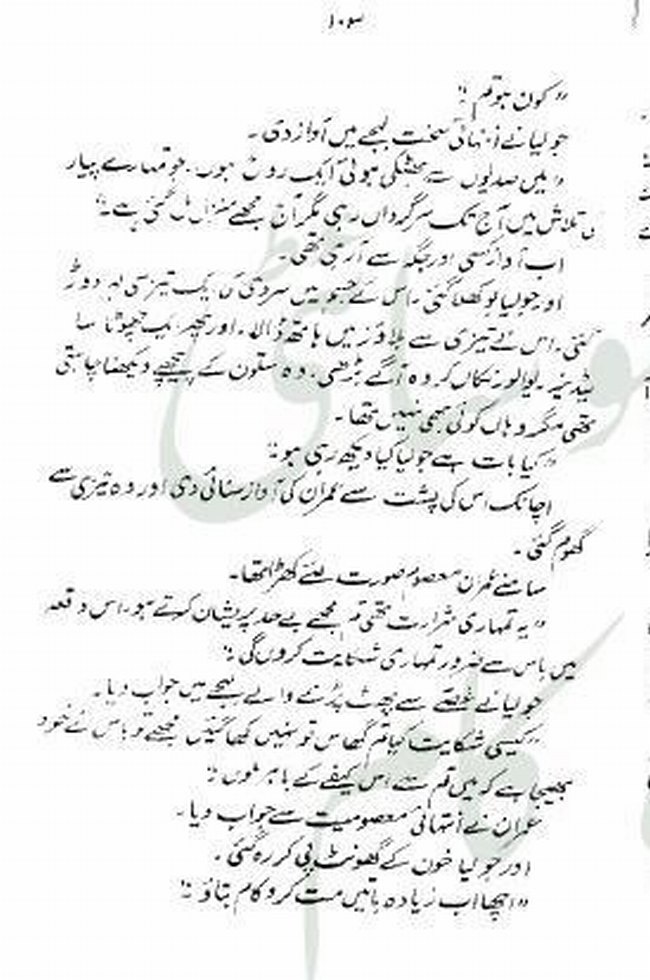 ۱۰۳
"کون ہو تم"؟
جولیا نے انتہائی سخت لہجے میں آواز دی۔
"میں صدیوں سے بھٹکی ہوئی ایک روح ہوں۔ جو تمہارے پیار
کی تلاش میں آج تک سرگرداں رہی مگر آج مجھے منزل مل گئی ہے"۔
اب آواز کسی اور جگہ سے آ رہی تھی۔
اور جولیا بوکھلا گئی۔ اس کے جسم میں سردی کی ایک تیز سی لہر دوڑ
گئی۔ اس نے تیزی سے بلاؤز میں ہاتھ ڈالا۔ اور پھر ایک چھوٹا سا
لیڈیز ریوالور نکال کر وہ آگے بڑھی۔ وہ ستون کے پیچھے دیکھنا چاہتی
تھی مگر وہاں کوئی بھی نہیں تھا۔
"کیا بات ہے جولیا کیا دیکھ رہی ہو"؟
اچانک اس کی پشت سے عمران کی آواز سنائی دی اور وہ تیزی سے
گھوم گئی۔
سامنے عمران معصوم صورت لئے کھڑا تھا۔
"یہ تمہاری شرارت تھی تم مجھے بے حد پریشان کرتے ہو۔ اس دفعہ
میں باس سے ضرور تمہاری شکایت کروں گی"؟
جولیا نے غصے سے پھٹ پڑنے والے لہجے میں جواب دیا۔
"کیسی شکایت کیا تم گھاس تو نہیں کھا گئیں مجھے تو باس نے خود
بھیجا ہے کہ میں تم سے اس کیفے کے باہر ملوں"؟
عمران نے انتہائی معصومیت سے جواب دیا۔
اور جولیا خون کے گھونٹ پی کر رہ گئی۔
"اچھا اب زیادہ باتیں مت کرو کام بتاؤ"؟